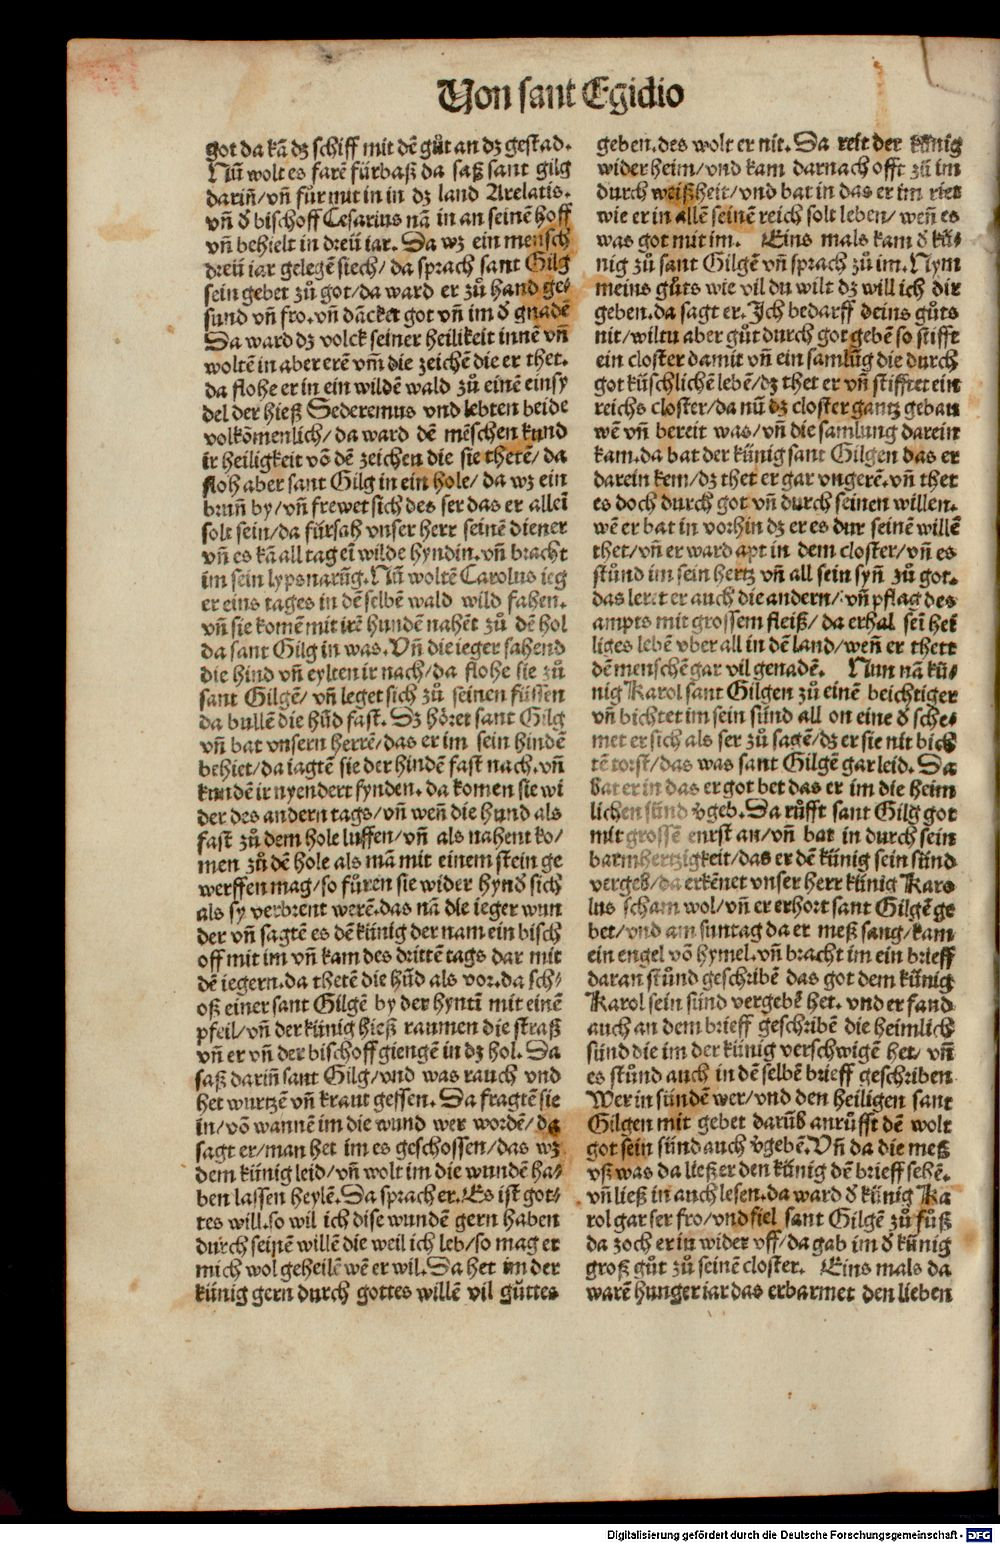 Von sant Egidio
got da kā dz schiff mit dē gůt an dz gestad.
Nū wolt es farē fürbaß da saß sant gilg
dariñ/ vñ fůr mit in in dz land Arelatis.
vñ d̕ bischoff Cesarius nā in an seinē hoff
vñ behielt in dreü iar. Da wz ein mensch
dreü iar gelegē siech/ da sprach sant Gilg
sein gebet zů got/ da ward er zů hand ge⸗
sund vñ fro. vñ dācket got vñ im d̕ gnadē
Da ward dz volck seiner heilikeit innē vñ
woltē in aber erē vm̄ die zeichē die er thet.
da flohe er in ein wildē wald zů einē einsy
del der hieß Sederemus vnd lebten beide
volkōmenlich/ da ward dē mēschen kund
ir heiligkeit vō dē zeichen die sie thetē/ da
floh aber sant Gilg in ein hole/ da wz ein
brun̄ by/ vñ frewet sich des ser das er alleī
solt sein/ da fürsah vnser herr seinē diener
vñ es kā all tag eī wilde hyndin. vñ bracht
im sein lypsnarūg. Nū woltē Carolus ieg
er eins tages in dē selbē wald wild fahen.
vñ sie komē mit irē hundē nahēt zů dē hol
da sant Gilg in was. Vñ die ieger sahend
die hind vñ eylten ir nach/ da flohe sie zů
sant Gilgē/ vñ leget sich zů seinen füssen
da bullē die hūd fast. Dz höret sant Gilg
vñ bat vnsern herrē/ das er im sein hindē
behiet/ da iagtē sie der hindē fast nach. vñ
kunden ir nyendert fynden. da komen sie wi
der des andern tags/ vñ weñ die hund als
fast zů dem hole luffen/ vñ als nahent ko/
men zů dē hole als mā mit einem stein ge
werffen mag/ so fůren sie wider hynd̕ sich
als sy verbrent werē. das nā die ieger wun
der vñ sagtē es dē künig der nam ein bisch
off mit im vñ kam des drittē tags dar mit
dē iegern. da thetē die hūd als vor. da sch⸗
oß einer sant Gilgē by der hyntī mit einē
pfeil/ vñ der künig hieß raumen die straß
vñ er vñ der bischoff giengē in dz hol. Da
saß dariñ sant Gilg/ vnd was rauch vnd
het wurtzē vñ kraut gessen. Da fragtē sie
in/ vō wannē im die wund wer wordē/ da
sagt er/ man het im es geschossen/ das wz
dem künig leid/ vñ wolt im die wundē ha⸗
ben lassen heylē. Da sprach er. Es ist got⸗
tes will. so wil ich dise wundē gern haben
durch seinē willē die weil ich leb/ so mag er
mich wol geheilē wē er wil. Da het im der
künig gern durch gottes willē vil gůttes
geben. des wolt er nit. Da reit der künig
wider heim/ vnd kam darnach offt zů im
durch weißheit/ vnd bat in das er im riet
wie er in allē seinē reich solt leben/ weñ es
was got mit im. Eins mals kam d̕ kü⸗
nig zů sant Gilgē vñ sprach zů im. Nym
meins gůts wie vil du wilt dz will ich dir
geben. da sagt er. Ich bedarff deins gůts
nit/ wiltu aber gůt durch got gebē so stifft
ein closter damit vñ ein samlūg die durch
got küschlichē lebē/ dz thet er vñ stifftet ein
reichs closter/ da nū dz closter gantz gebau
wē vñ bereit was/ vñ die samlung darein
kam. da bat der künig sant Gilgen das er
darein kem/ dz thet er gar vngerē. vñ thet
es doch durch got vñ durch seinen willen.
wē er bat in vorhin dz er es dur seinē willē
thet/ vñ er ward apt in dem closter/ vñ es
stůnd im sein hertz vñ all sein syñ zů got.
das leret er auch die andern/ vñ pflag des
ampts mit grossem fleiß/ da erhal seī hei
liges lebē vber all in dē land/ weñ er thett
dē menschē gar vil genadē. Nun nā kü⸗
nig Karol sant Gilgen zů einē beichtiger
vñ bichtet im sein sünd all on eine d̕ sche⸗
met er sich als ser zů sagē/ dz er sie nit bich
tē torst/ das was sant Gilgē gar leid. Da
bat er in das er got bet das er im die heim
lichen sünd v̕geb. Da růfft sant Gilg got
mit grossē ernst an/ vñ bat in durch sein
barmhertzigkeit/ das er dē künig sein sünd
vergeb/ da erkēnet vnser herr künig Karo
lus scham wol/ vñ er erhort sant Gilgē ge
bet/ vnd am suntag da er meß sang/ kam
ein engel vō hymel. vñ bracht im ein brieff
daran stůnd geschribē das got dem künig
Karol sein sünd vergebē het. vnd er fand
auch an dem brieff geschribē die heimlich
sünd die im der künig verschwigē het/ vñ
es stůnd auch in dē selbē brieff geschriben
Wer in sündē wer/ vnd den heiligen sant
Gilgen mit gebet darūb anrůfft dē wolt
got sein sünd auch v̕gebē. Vñ da die meß
vß was da ließ er den künig dē brieff sehē.
vñ ließ in auch lesen. da ward d̕ künig Ka
rol gar ser fro/ vnd fiel sant Gilgē zů fůß
da zoch er in wider vff/ da gab im d̕ künig
groß gůt zů seinē closter. Eins mals da
warē hunger iar das erbarmet den lieben
Digitalisierung gefördert durch die Deutsche Forschungsgemeinschaft - DFG